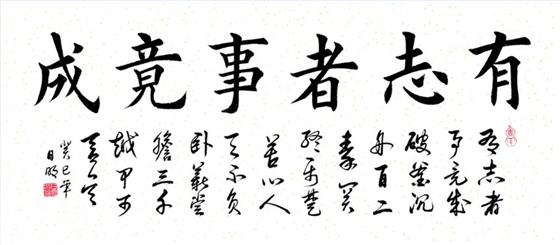 有志者事竟成
有志者
事竟成
破釜沉
舟百二
秦关
终属楚
苦心人
天不负
卧薪尝
膽三千
越甲可
吞吴
癸巳年